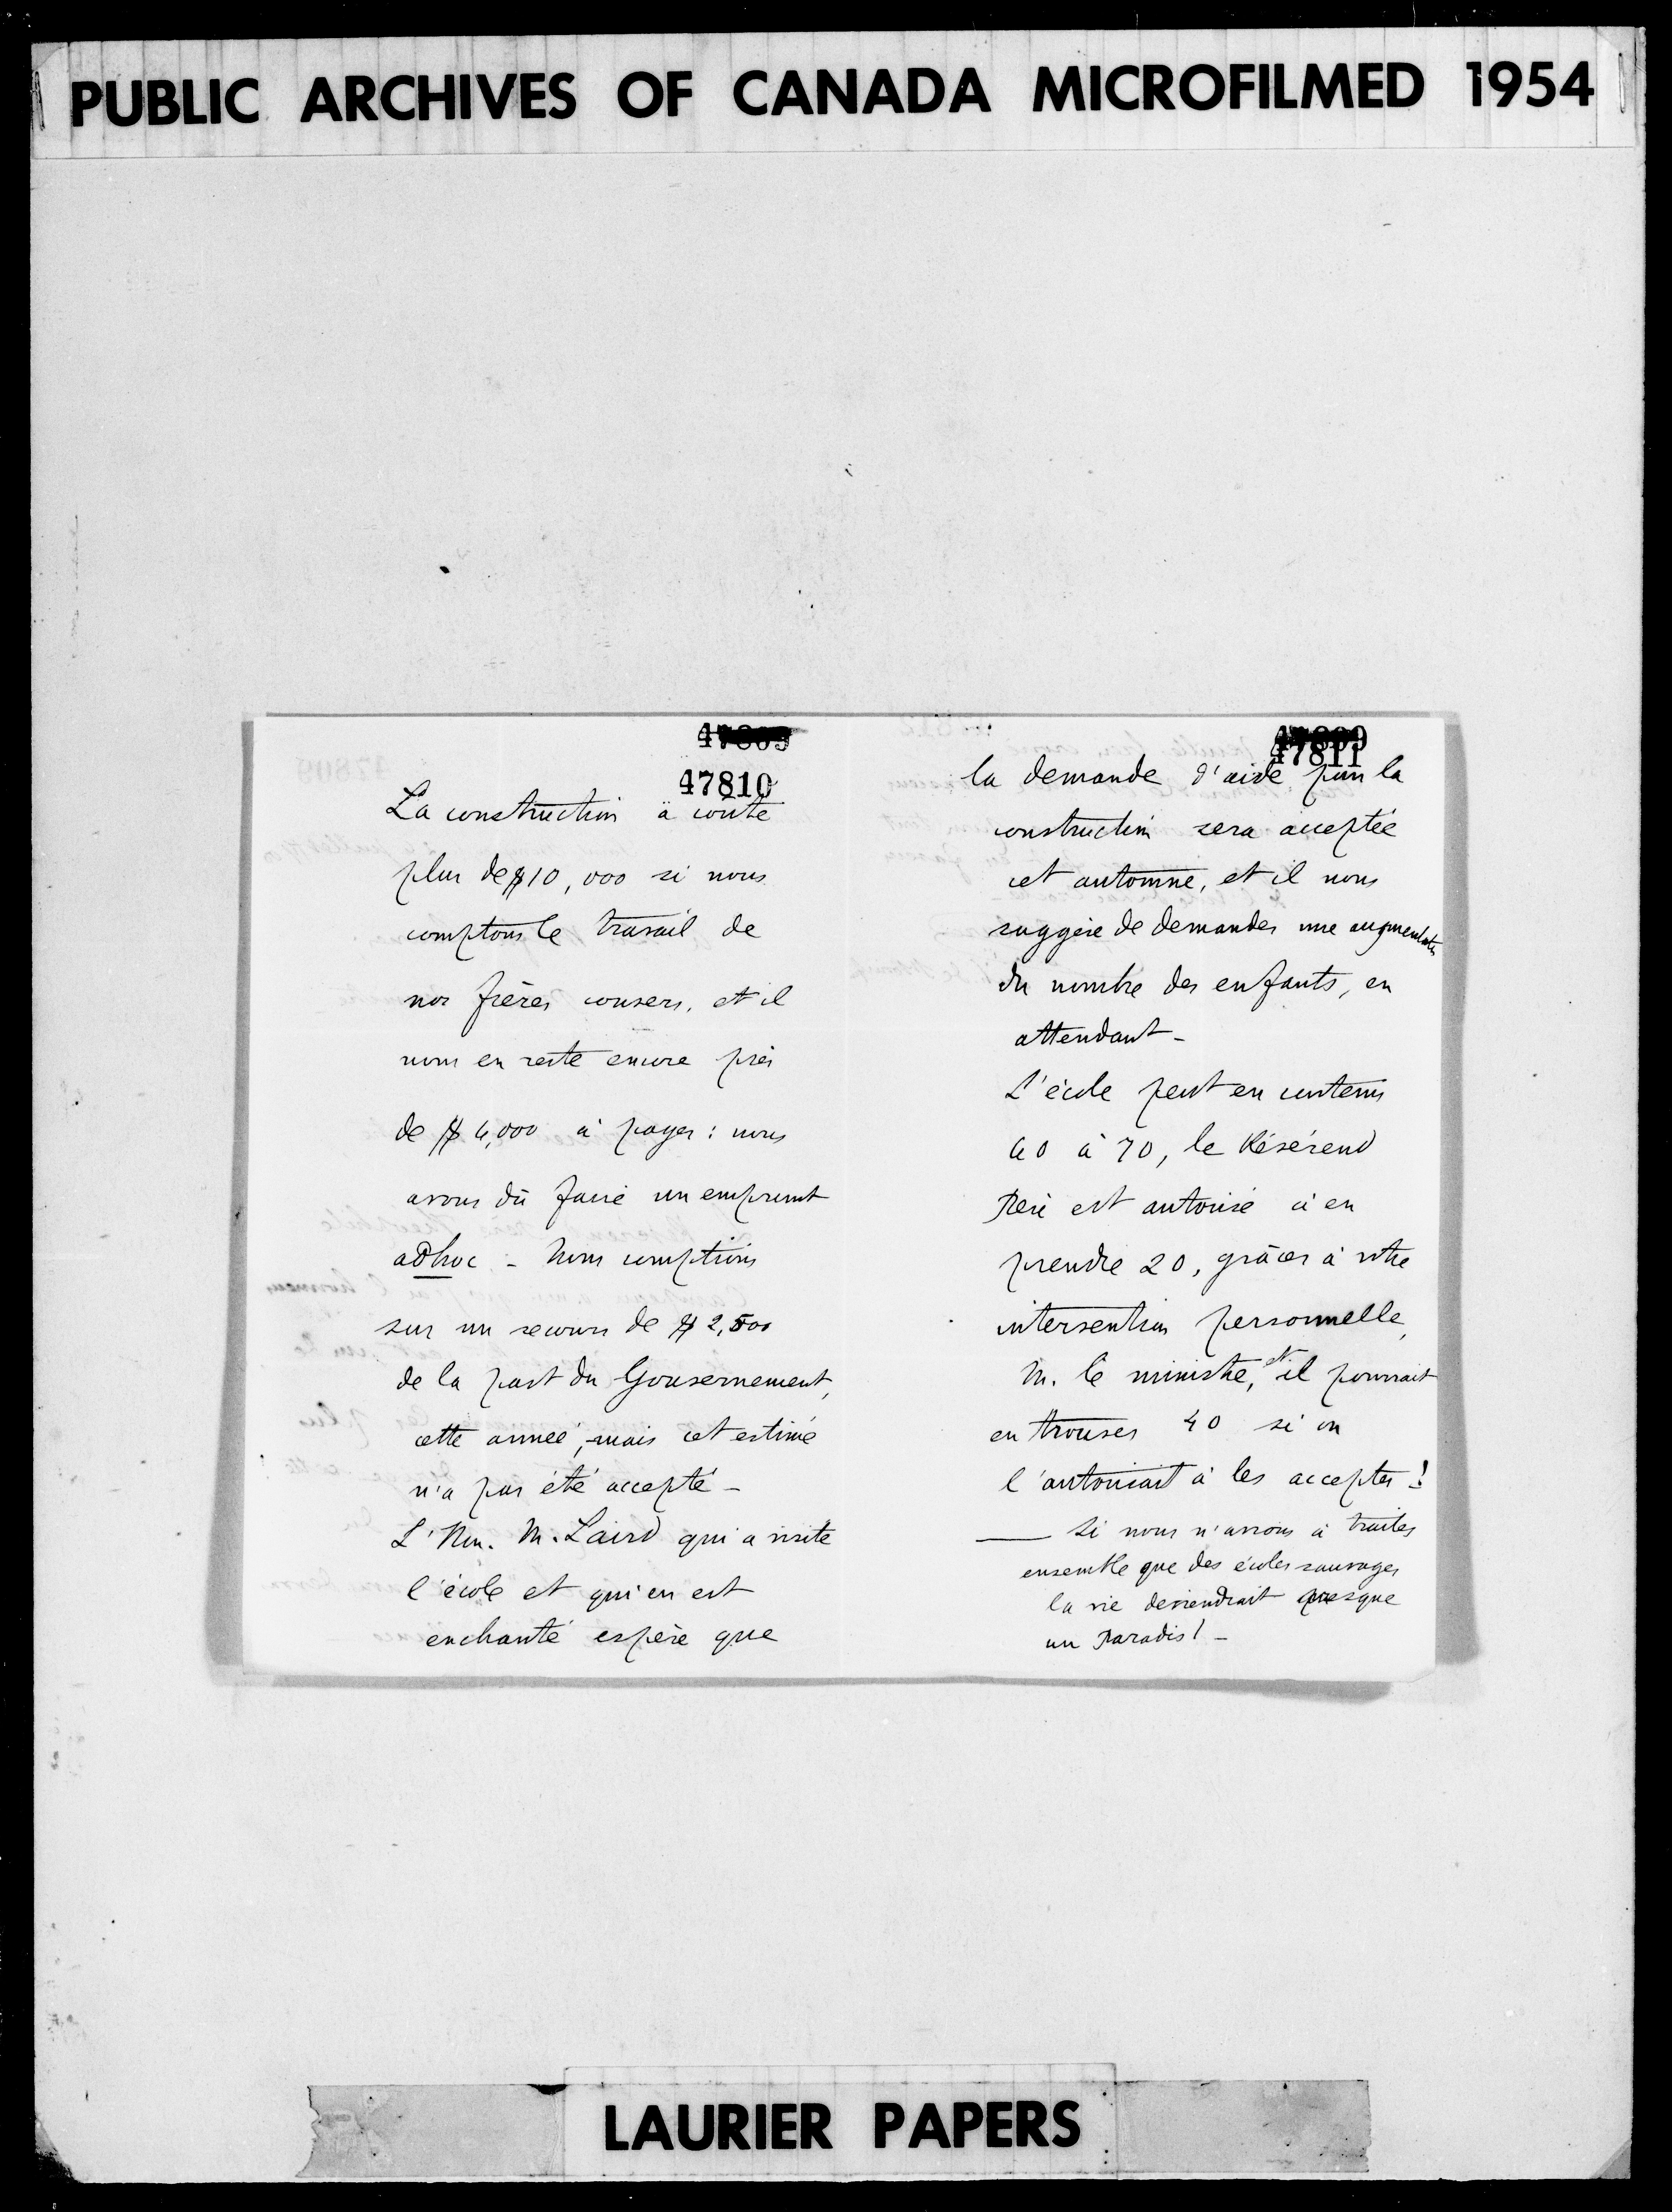 PUBLIC ARCHIVES OF CANADA MICROFILMED 1954
47810
La construction a coûté
plus de $10,000 si nous
comptons le travail de
nos frères convers, et il
nous en reste encore près
de $ 6,000 à payer : nous
avons dû faire un emprunt
ad hoc - Nous comptions
sur un secours de $ 2,500
de la part du Gouvernement,
cette année, mais cet estimé
n'a pas été accepté -
L'Hon. M. Laird qui a visité
l'école et qui en est
enchanté espère que
47811
la demande d'aide pour la
construction sera acceptée
cet automne, et il nous
suggère de demander une augmentation
du nombre des enfants, en
attendant -
L'école peut en contenir
60 à 70, le Révérend
Père est autorisé à en
prendre 20, grâces à votre
intervention personnelle,
M. le ministre, et il pourrait
en trouver 40 si on
l'autorisait à les accepter !
— Si nous n'avions à traiter
ensemble que des écoles sauvages
la vie deviendrait presque
un Paradis ! -
LAURIER PAPERS